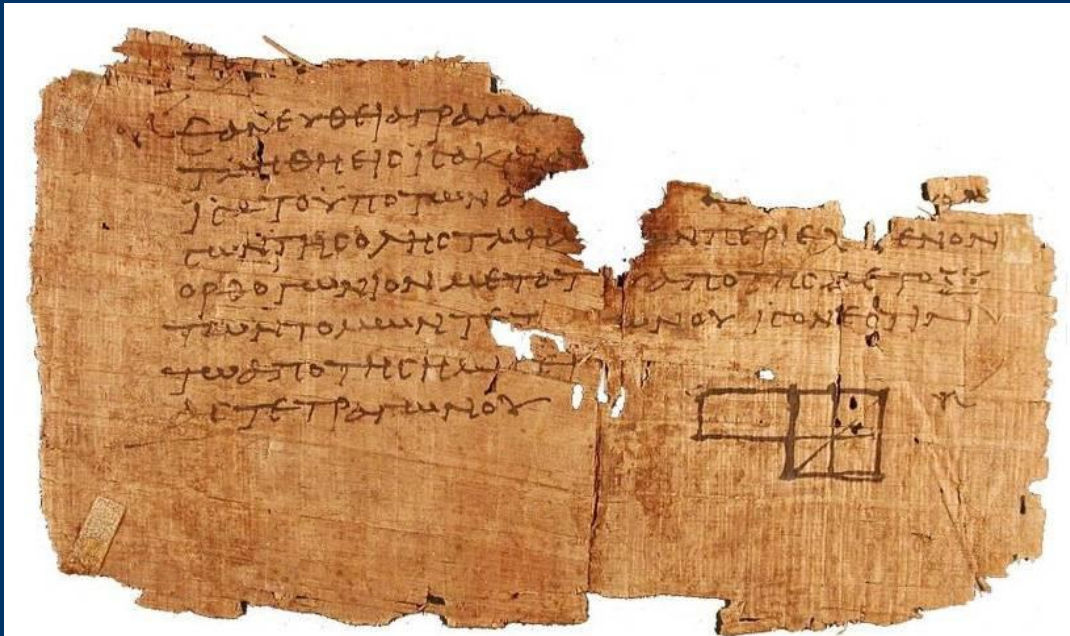 ΕΑΝΕΥΘΕΙΑΓΡΑΜΜ
ΤΜΗΘΗΕΙϹΙϹΑΚΑΙΑ
ΙϹΑΤΟΥΠΟΤΩΝΑ
ϹΩΝΤΗϹΟΛΗϹΤΜΗΜ ΩΝΠΕΡΙΕΧ ΜΕΝΟΝ
ΟΡΘΟΓΩΝΙΟΝΜΕΤΟΤ ΑΠΟΤΗϹΜΕΤΟΞΥ
ΤΩΝΤΟΜΩΝΤΕΤ ΩΝΟΥ ΙϹΟΝΕϹΤΙΝ
ΤΩΑΠΟΤΗϹΗΜΙϹΕΙ
ΑϹΤΕΤΡΑΓΩΝΟΥ